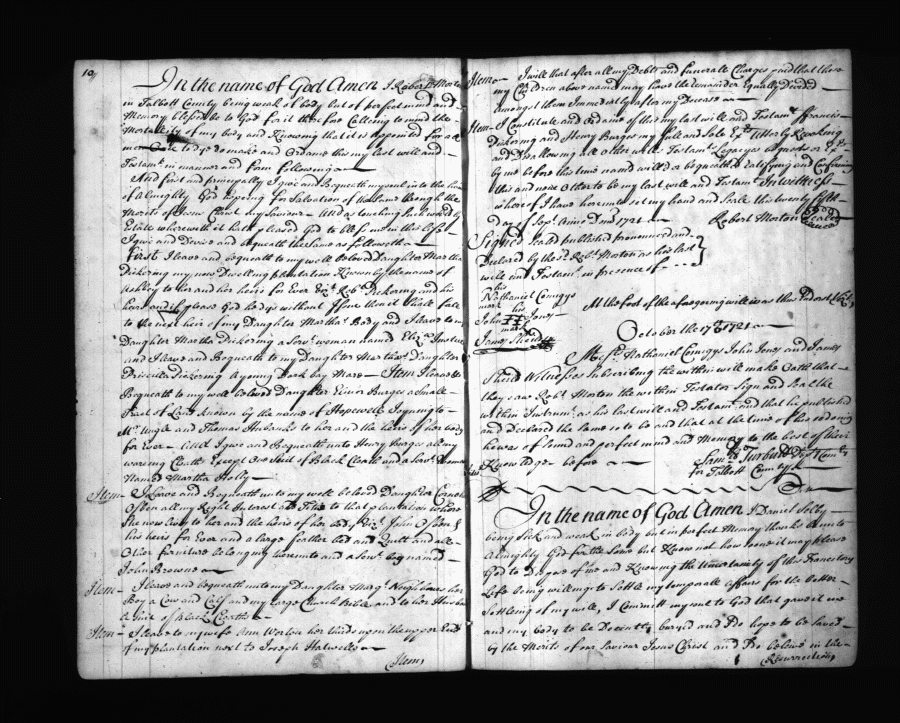 10
In the name of God Amen I Robert Morton
in Talbott County being weak of body but of perfect mind and
Memory blessed be to God for it therefore Calling to mind the
Mortality of my body and Knowing that it is appointed for all
men once to dye do make and Ordaine this my last will and
Testamt in manner and form following
And first and principally I give and Bequeath my soul into the hands
of Almighty God hoping for Salvation of the same through the
Merits of Jesus Christ my Saviour And as touching such worldly
Estate wherewith it hath pleased God to bless me in this life
I give and Devise and bequeath the same as followeth
First I leave and bequeath to my well beloved Daughter Martha
Dickering my now Dwelling plantation Known by the name of
Ashley to her and her heirs for Ever Robt Pickering and his
heirs and if please God he dyes without Issue then it shall fall
to the next heir of my Daughter Marthas Body and I leave to my
Daughter Martha Dickering a Servt woman named Eliza
and I leave and Bequeath to my Daughter Marthas Daughter
Priscilla Pickering a young Dark bay Mare Item I leave &
Bequeath to my well beloved Daughter Elinor Burges a Small
Tract of Land known by the name of Hopewell Joyning to
Mr Ungle and Thomas Hubanks to her and the heirs of her body
for Ever And I give and Bequeath unto Henry Burges all my
wareing Cloaths Except one Suit of Black Cloath and a Servt Woman
Named Martha Holly
Item I Leave and Bequeath unto my well beloved Daughter
all my Right Interest and Title to that plantation where
She now lives to her and the heirs of her body Vizt John &
his heirs for Ever and a large feather bed and Quilt and all
Other furniture belonging thereunto and a Servt boy named
John Browne
Item I leave and bequeath unto my Daughter Margt her
Boy a Cow and Calf and my large Church Bible and to her Husband
a Suit of Black Cloaths
Item I leave to my wife Ann Morton her thirds upon the upper End
of my plantation next to Joseph
Item
Item I will that after all my Debts and funerall Charges paid that these
my Children above named may have the remainder Equally Divided
amongst them Immediatly after my Decease
Item I Constitute and Ordaine of this my last will and Testamt Francis
Dickering and Henry Burges my full and Sole Exrs Utterly Revoking
and Disallowing all other wills Testamts Legacyes bequests or Exrs
by me before this time named willed or bequeathed Ratifying and Confirming
this and none Other to be my last will and Testamt In witness
whereof I have hereunto set my hand and Seale this twenty fifth
day of Sepr Anno Dom 1721
Robert Morton Seale
Signed Sealed published pronounced and
Declared by the sd Robt Morton as his last
will and Testamt in presence of
his
Nathaniel Comegys
mark
his
John Jones
mark
James Sheild
At the foot of the aforegoing will was thus Indorst Vizt
October the 17th 1721
Messrs Nathaniel Comegys John Jones and James
Sheild Witnesses Subscribing the within will make Oath that
they saw Robt Morton the within Testator Sign and Seal the
within Instrumt as his last will and Testamt and that he published
and Declared the same so to be and that at the time of his so doing
he was of sound and perfect mind and Memory to the best of their
Knowledge before
Saml Turbutt Depty Comry
for Talbott County
In the name of God Amen I Daniel Selby
being sick and weak in body but in perfect Memory thanks be unto
Almighty God for the same but Know not how soone it may please
God to Dispose of me and Knowing the uncertainty of this Transitory
Life being willing to settle my temporall affairs for the better
Settleing of my wife, I Committ my soul to God that gave it me
and my body to be Decently buryed and I do hope to be Saved
by the Merits of our Saviour Jesus Christ and I do believe in the
Resurrection